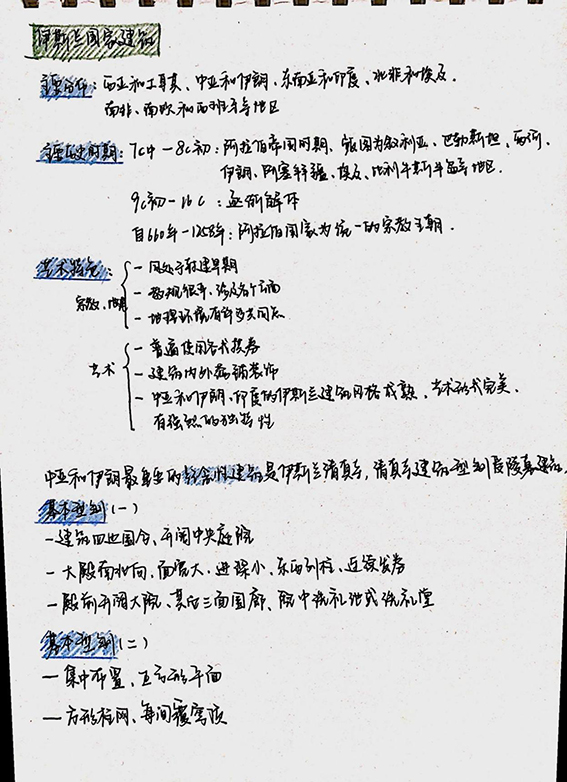 伊斯兰国家建筑
主要分布：西亚和土耳其、中亚和伊朗、东南亚和印度、北非和埃及.
南非、南欧和西班牙等地区
主要历史时期：7c中－8c初：阿拉伯帝国时期、版图为叙利亚、巴勒斯坦、两河、
伊朗、阿塞拜疆、埃及、比利牛斯半岛等地区.
9c初－16c：逐渐解体
自660年－1258年：阿拉伯国家为统一的宗教王朝.
艺术特色：
－同处于封建早期
宗教、
－教规很严、涉及各个方面
－地理环境有许多共同点
－普遍使用各式拱券
艺术
－建筑内外满铺装饰
－中亚和伊朗、印度的伊斯兰建筑风格成熟、艺术形式完美、
有强烈的独特性
中亚和伊朗最突出的纪念性建筑是伊斯兰清真寺,清真寺建筑型制
基本型制(一)
－建筑四边围合、开阔中央庭院
－大殿南北向、面宽大、进深小、东西列柱、逐渐发券
－殿前开阔大院、其它三面围廊、院中洗礼池或洗礼堂
基本型制(二)
－集中布置、正方形平面
－方形柱网、每间覆穹顶